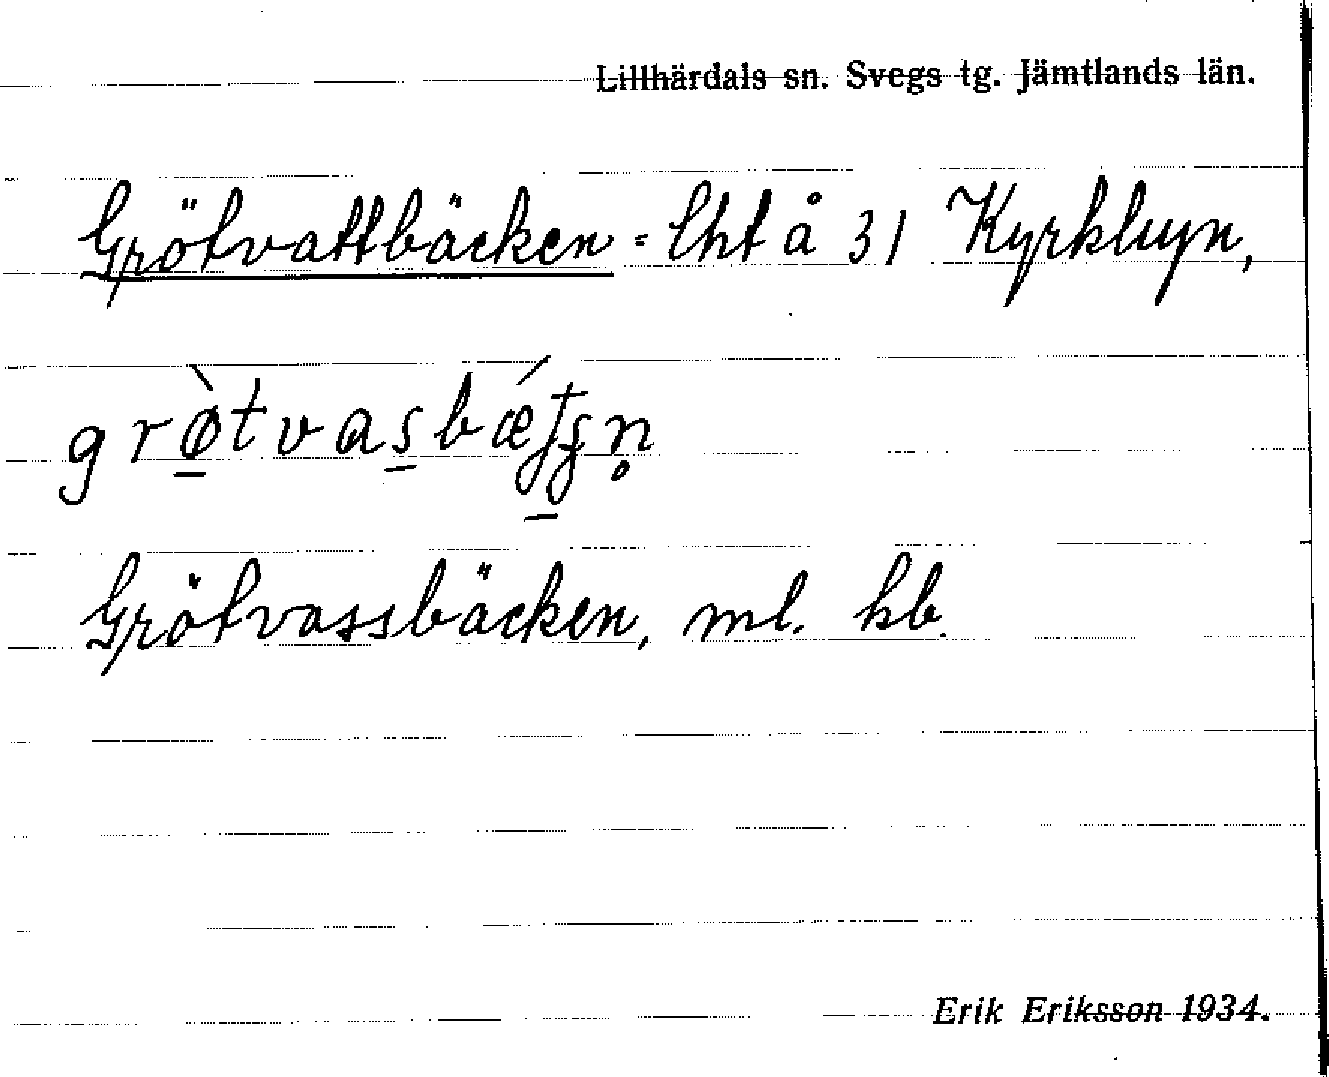 Lillhärdals sn. Svegs tg. Jämtlands län.
Grötvattbäcken = lht å 31 Kyrkbyn,
Grötvassbäcken, ml. kb.
Erik Eriksson 1934.